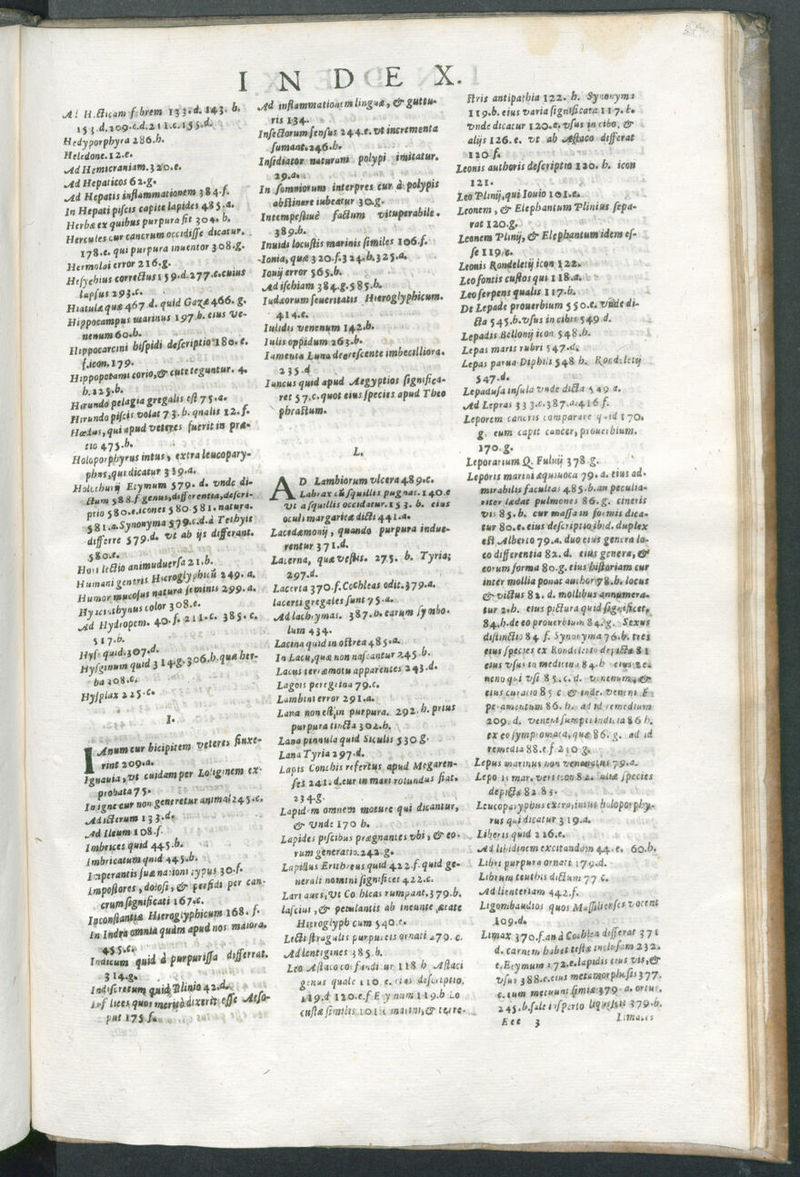 INDEX.
Ad Hecticam febrem 133.d. 143. b.
153.d.209.c.d.211.c.155.d.
Hedyporphyra 286.b.
Heledone.12.e.
Ad Hemicraniam.320.e.
Ad Hepaticos 62.g.
Ad Hepatis inflammationem 384.f.
In Hepati piscis capite lapides 485.a.
Herbæ ex quibus purpura fit 304. b.
Hercules cur cancrum occidisse dicatur.
178.e. qui purpura inuentor 308.g.
Hermolai error 216.g.
Hesychius correctus 159.d.277.e.cuius
lapsus 293.c.
Hiatula quæ 467.d. quid Gazæ 466. g.
Hippocampus marinus 197.b. eius ve-
nenum 60.b.
Hippocarcini hispidi descriptio 180. e.
f.icon.179.
Hippopotami corio,& cute teguntur. 4.
b.225.b.
Hirundo pelagia gregalis est 75.a.
Hirundo piscis volat 73. b. qualis 12. f.
Hœdus, qui apud veteres fuerit in præ-
tio 475.b.
Holoporphyrus intus, extra leucopary-
phus,qui dicatur 319.a.
Holothurij Etymum 579. d. vnde di-
ctum 588.f genus,differentia,descri-
ptio 580.e.icones 580.581. natura.
581.a.Synonyma 579.c.d.à Tethyis
differre 579.d. vt ab ijs differant.
580.e.
Horti lectio animaduersa 21.b.
Humani generis Hieroglyphicū 249. a.
Humor mucosus natura seminis 299. a.
Hyacinthynus color 308.e.
Ad Hydropem. 40.f. 211.c. 385. c.
517.b.
Hyssi quid.307.d.
Hysginum quid 314.g.306.b.quæ her-
ba 208.c.
Hysplax 225.c.
I.
IAnum cur bicipitem veteres finxe-
rint 209.a.
Ignauia, vt cuidam per Loliginem ex-
probata 75.
In igne cur non generetur animal 245.c.
Ad icterum 133.d.
Ad Ileum 108.f.
Imbrices quid 445.b.
Imbricatum quid 445.b.
Imperantis suæ nationi typus 30.f.
Impostores, dolosi, & perfidi per can-
crum significati 167.c.
Inconstantiæ Hieroglyphicum 168. f.
In India omnia quàm apud nos maiora.
455.c.
Indicum quid à purpurissa differat.
314.g.
Indiscretum quid Plinio 42.d.
Infelices quos meritò dixerit esse Aeso-
pus 175.f.
Ad inflammationem linguæ, & guttu-
ris 134.
Insectorum sensus 244.e. vt incrementa
sumant.246.b.
Insidiator naturam polypi imitatur.
29.a.
In somniorum interpres cur à polypis
abstinere iubeatur 30.g.
Intempestiuè factum vituperabile.
389.b.
Inuidi locustis marinis similes 106.f.
Ionia, quæ 320.f.324.b.325.a.
Iouij error 565.b.
Ad ischiam 384.g.585.b.
Iudæorum seueritatis Hieroglyphicum.
414.e.
Iulidis venenum 142.b.
Iulis oppidum 263.b.
Iumenta Luna decrescente imbecilliora.
235.d
Iuncus quid apud Aegyptios significa-
ret 57.c.quot eius species apud Theo
phrastum.
L.
AD Lambiorum vlcera 489.c.
Labrax cū squillis pugnat.140.e
Vt a squillis occidatur.153. b. eius
oculi margaritæ dicti 441.a.
Lacedæmonij, quando purpura indue-
rentur 371.d.
Lacerna, quæ vestis. 275. b. Tyria;
297.d.
Lacerta 370.f.Cochleas odit.379.a.
lacerti gregales sunt 75.a.
Ad lachrymas. 387.b.earum symbo-
lum 434.
Lacina quid in ostrea 485.a.
In Lacu,quæ non nascantur 245.b.
Lacus terræmotu apparentes 243.d.
Lagois peregrina 79.c.
Lambini error 291.a.
Lana non est,in purpura. 292.b.prius
purpura tincta 302.b.
Lana pinnula quid Siculis 530 g.
Lana Tyria 297.d.
Lapis Conchis refertus apud Megaren-
ses 241.d.cur in mari rotundus fiat.
234.g.
Lapidem omnem mouere qui dicantur,
& Vnde 170 b.
Lapides piscibus prægnantes vbi, & eo-
rum generatio.242.g.
Lapillus Erithreus quid 422.f.quid ge-
nerali nomini significet 422.c.
Lari aues,Vt Cochleas rumpant.379.b.
lasciui, & petulantis ab ineunte ætate
Hieroglyphicum 540.e.
Lecti stragulis purpureis ornati 279. c.
Ad lentigines 385.b.
Leo Astaco confundi ur 118 b Astaci
genus quale 110 e. eius descriptio,
119.d 120.e.f Etymum 119.b Lo
custæ similis 101.e marini,& terre-
stris antipathia 122. b. Synonyma
119.b. eius varia significata 117.b.
vnde dicatur 120.e.vsus in cibo, &
alijs 126.e. vt ab Astaco differat
120 f.
Leonis authoris descriptio 120. b. icon
121.
Leo Plinij,qui Iouio 101.e.
Leonem, & Elephantum Plinius sepa-
rat 120.g.
Leonem Plinij, & Elephantum idem es-
se 119.e.
Leonis Rondeletij icon 122.
Leo fontis custos qui 118.a.
Leo serpens qualis 117.b.
De Lepade prouerbium 550.e. vnde di-
cta 545.b.vsus in cibis 549 d.
Lepadis Bellonij icon 548.b.
Lepas maris rubri 547.d.
Lepas parua Diphili 548 b. Rondeletij
547.d.
Lepadusa insula vnde dicta 549 a.
Ad Lepras 333.c.387.a.416 f.
Leporem cancris comparare quid 170.
g. eum capit cancer, prouerbium.
170.g.
Leporarium Q. Fuluij 378 g.
Leporis marini æquiuoca 79. a. eius ad-
mirabilis facultas 485.b.an peculia-
riter lædat pulmones 86.g. cineris
vis 85.b. cur massa in formis dica-
tur 80.e. eius descriptio,ibid. duplex
est Alberto 79.a. duo eius genera lo-
co differentia 82.d. eius genera, &
eorum forma 80.g. eius historiam cur
inter mollia ponat author 78.b. locus
& victus 82. d. mollibus annumera-
tur 2.b. eius pictura quid significet,
84.b.de eo prouerbium 84.g. Sexus
distinctio 84 f. Synonyma 76.b. tres
eius species ex Rondeletio depictæ 81
eius vsus in medicina 84.b eius ve-
neno qui vsi 85.c.d. venenum, &
eius curatio 85 c & inde. veneni
86.b. ad id remedium
209.d. veneni sumpti indicia 86 b.
ex eo symptomata, quæ 86. g. ad id
remedia 88.e.f 210 g.
Lepus marinus non venenatus 79.a.
Lepo is mar. veri icon 82. aliæ species
depictæ 82.83.
Leucoparyphus extra,intus holoporphy-
rus qui dicatur 319.a.
Liberis quid 226.e.
Ad libidinem excitandam 44.e. 60.b.
Libri purpura ornati 279.d.
Librum teuthis dictum 77 c.
Ad lienteriam 442.f.
Ligombaudios quos Massilienses vocent
109.d.
Limax 370.f.an à Cochlea differat 371
d. carnem habet testæ inclusam 232.
e.Etymum 372.e.lapidis eius vis,&
vsus 388.e.eius metamorphosis 377.
c. eum metuunt simiæ 379. a. ortus.
245.b.sale insperso liquescit 379.b.
Eee 3
Limaces